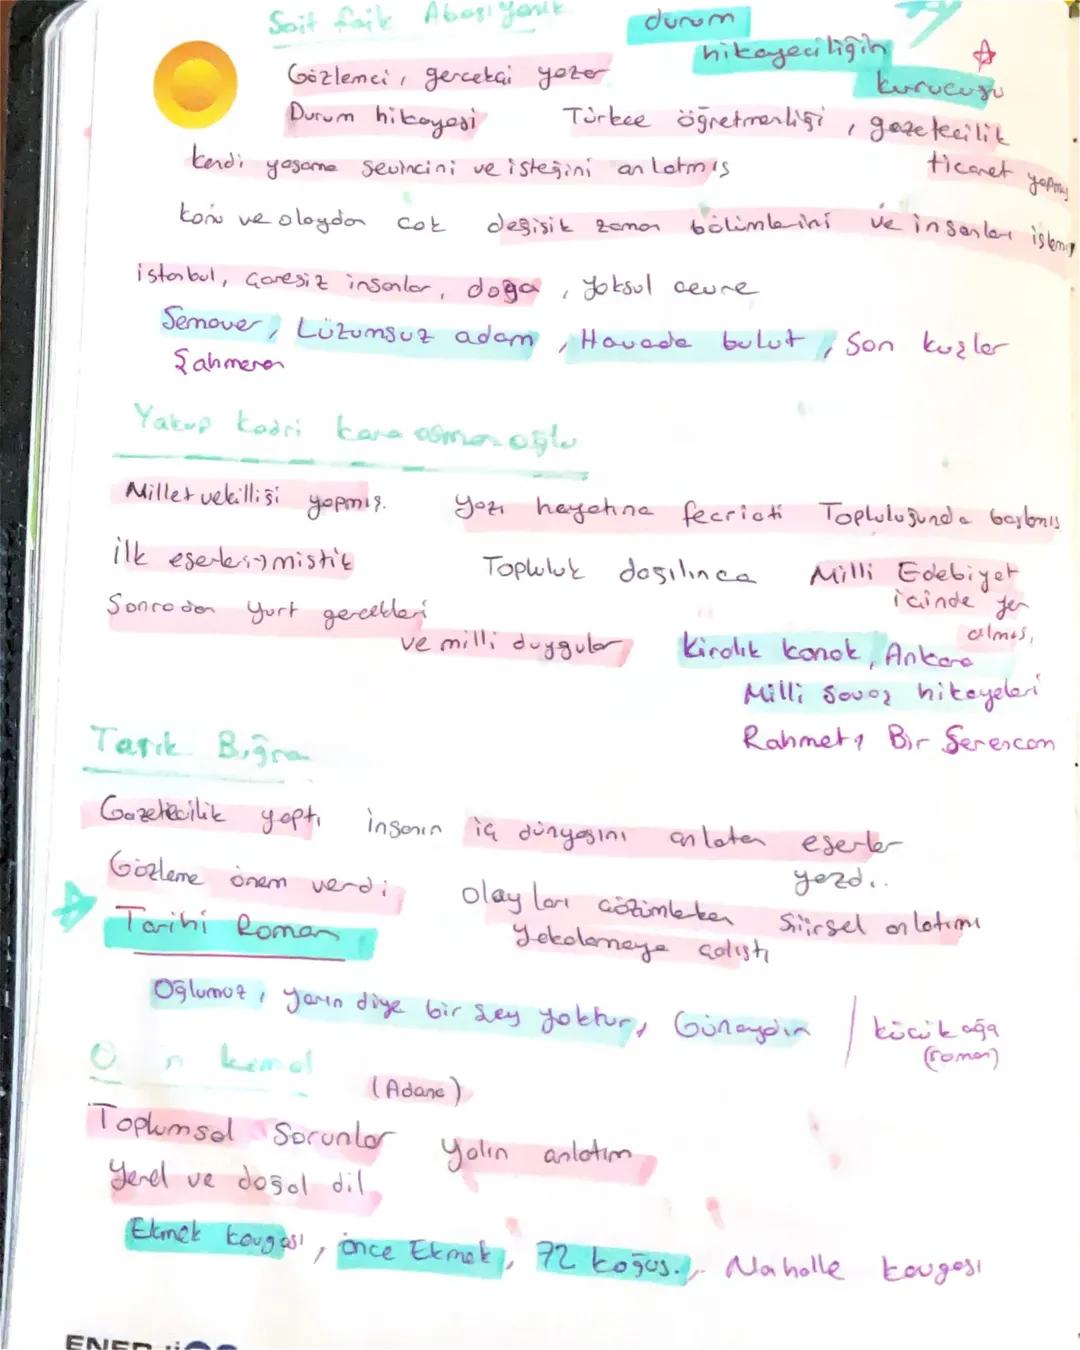 Sait faik Abasıyanık
durum
hikayeciliğin
kurucusu
Gözlemci, gerçekçi yazar
Durum hikayesi
Türkçe öğretmenliği, gazetecilik
ticaret yapmış
kendi yaşama sevincini ve isteğini anlatmış
konu ve olaydan çok değişik zaman bölümlerini ve insanları işlemiş
istanbul, çaresiz insanlar, doğa, yoksul çevre
Semaver, Lüzumsuz adam, Havada bulut, Son kuşlar
Şahmeran
Yakup kadri kara osmanoğlu
Milletvekilliği yapmış.
yazı hayatına fecriati Topluluğunda başlamış
ilk eserleri→mistik
Topluluk dağılınca Milli Edebiyat
içinde yer
almış,
Sonradan yurt gerçekleri
ve milli duygular
Kiralık konak, Ankara
Milli Savaş hikayeleri
Rahmet, Bir Serencam
Tarık Buğra
Gazetecilik yaptı
insanın iç dünyasını anlatan eserler
yazdı..
Gözleme önem verdi
Olayları çözümlerken şiirsel anlatımı
yakalamaya çalıştı
Tarihi Roman
Oğlumuz, yarın diye bir şey yoktur, Günaydın / küçük ağa
(roman)
kemal
(Adana)
Toplumsal Sorunlar
yalın anlatım
yerel ve doğal dil
Ekmek kavgası, önce Ekmek, 72 koğuş., Mahalle kavgası